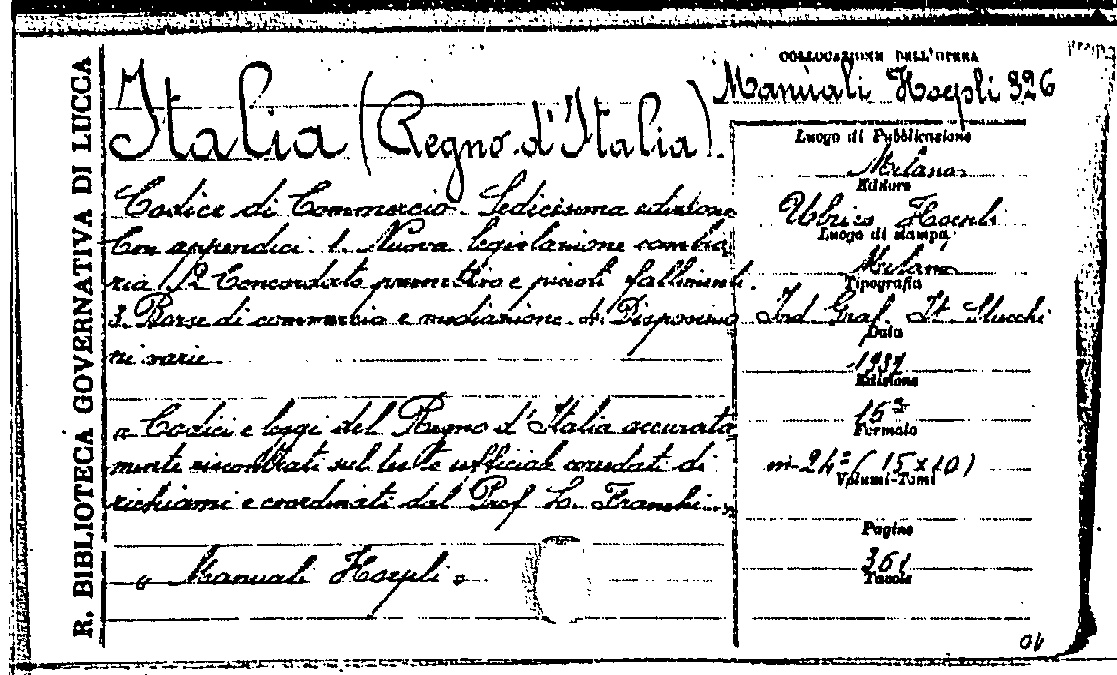 R. BIBLIOTECA GOVERNATIVA DI LUCCA
COLLOCAZIONE DELL'OPERA
Manuali Hoepli 326
Italia (Regno d'Italia).
Codice di Commercio. Sedicesima edizione
Con appendici 1. Nuova legislazione cambia
ria / 2 Concordato preventivo e piccoli fallimenti.
3. Borse di commercio e mediazione. 4. Disposizio
ni varie
« Codici e leggi del Regno d'Italia accurata
mente riscontrati sul testo ufficiale corredati di
richiami e coordinati dal Prof L. Franchi... »
« Manuale Hoepli »
Luogo di Pubblicazione
Milano
Editore
Ulrico Hoepli
Luogo di stampa
Milano
Tipografia
Ind Graf. It. Stucchi
Data
Edizione
Formato
in-24º ( 15 x 10 )
Volumi-Tomi
Pagine
361
Tavole